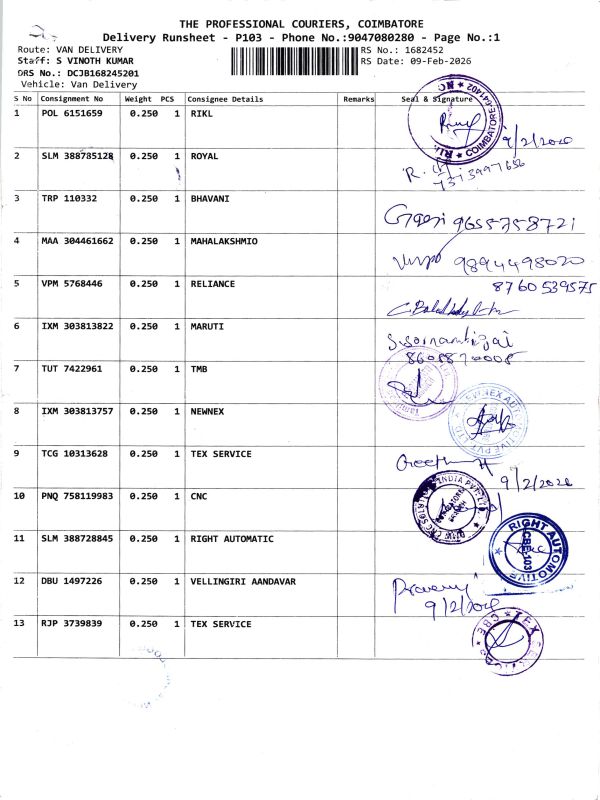 THE PROFESSIONAL COURIERS, COIMBATORE
Delivery Runsheet - P103 - Phone No.:9047080280 - Page No.:1
Route: VAN DELIVERY
RS No.: 1682452
Staff: S VINOTH KUMAR
RS Date: 09-Feb-2026
DRS No.: DCJB168245201
Vehicle: Van Delivery
S No Consignment No Weight PCS Consignee Details Remarks Seal & Signature
1 POL 6151659 0.250 1 RIKL
COIMBATORE-641402
9/2/2026
2 SLM 388785128 0.250 1 ROYAL
3 TRP 110332 0.250 1 BHAVANI
9655758721
4 MAA 304461662 0.250 1 MAHALAKSHMIO
9894498020
5 VPM 5768446 0.250 1 RELIANCE
8760539575
6 IXM 303813822 0.250 1 MARUTI
8608870008
7 TUT 7422961 0.250 1 TMB
8 IXM 303813757 0.250 1 NEWNEX
9 TCG 10313628 0.250 1 TEX SERVICE
9/2/2026
10 PNQ 758119983 0.250 1 CNC
INDIA PVT. LTD.
11 SLM 388728845 0.250 1 RIGHT AUTOMATIC
RIGHT AUTOMOTIVE
CBE-103
12 DBU 1497226 0.250 1 VELLINGIRI AANDAVAR
9/2/2026
13 RJP 3739839 0.250 1 TEX SERVICE
TEX
CBE